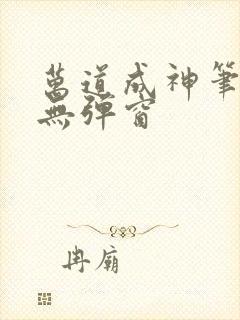 萬道成神筆
無彈窗
冉廟